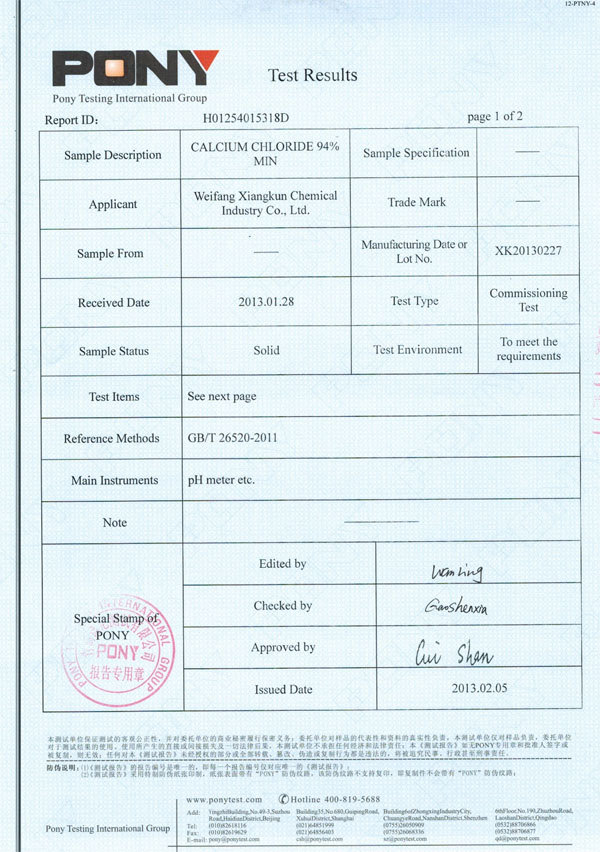 12-PTNY-4
PONY
Test Results
Pony Testing International Group
Report ID: H01254015318D page 1 of 2
Sample Description CALCIUM CHLORIDE 94% MIN Sample Specification ——
Applicant Weifang Xiangkun Chemical Industry Co., Ltd. Trade Mark ——
Sample From —— Manufacturing Date or Lot No. XK20130227
Received Date 2013.01.28 Test Type Commissioning Test
Sample Status Solid Test Environment To meet the requirements
Test Items See next page
Reference Methods GB/T 26520-2011
Main Instruments pH meter etc.
Note ——
Special Stamp of PONY
PONY INTERNATIONAL GROUP
PONY
报告专用章
Edited by
Checked by Gaoshenxia
Approved by Cui Shan
Issued Date 2013.02.05
本测试单位保证测试的客观公正性，并对委托单位的商业秘密履行保密义务；委托单位对样品的代表性和资料的真实性负责，本测试单位仅对样品负责，委托单位
对于测试结果的使用、使用所产生的直接或间接损失及一切法律后果，本测试单位不承担任何经济和法律责任；本《测试报告》如无PONY专用章和批准人签字或
被复制，则无效；任何对本《测试报告》未经授权的部分或全部转载、篡改、伪造或复制行为都是违法的，将被追究民事、行政甚至刑事责任。
防伪说明：(1)《测试报告》的报告编号是唯一的，即每一个报告编号仅对应唯一的《测试报告》；
(2)《测试报告》采用特制防伪纸张印制，纸张表面带有"PONY"防伪纹路，该防伪纹路不支持复印，即复制件不会带有"PONY"防伪纹路；
www.ponytest.com Hotline 400-819-5688
Pony Testing International Group
Add: YingzhiBuilding,No.49-3,Suzhou Road,HaidianDistrict,Beijing
Tel: (010)82618116
Fax: (010)82619629
E-mail: pony@ponytest.com
Building35,No.680,GuipingRoad, XuhuiDistrict,Shanghai
(021)64851999
(021)64856403
csh@ponytest.com
Building6ofZhongxingIndustryCity, ChuangyeRoad,NanshanDistrict,Shenzhen
(0755)26050909
(0755)26068336
sz@ponytest.com
6thFloor,No.190,ZhuzhouRoad, LaoshanDistrict,Qingdao
(0532)88706866
(0532)88706877
qd@ponytest.com